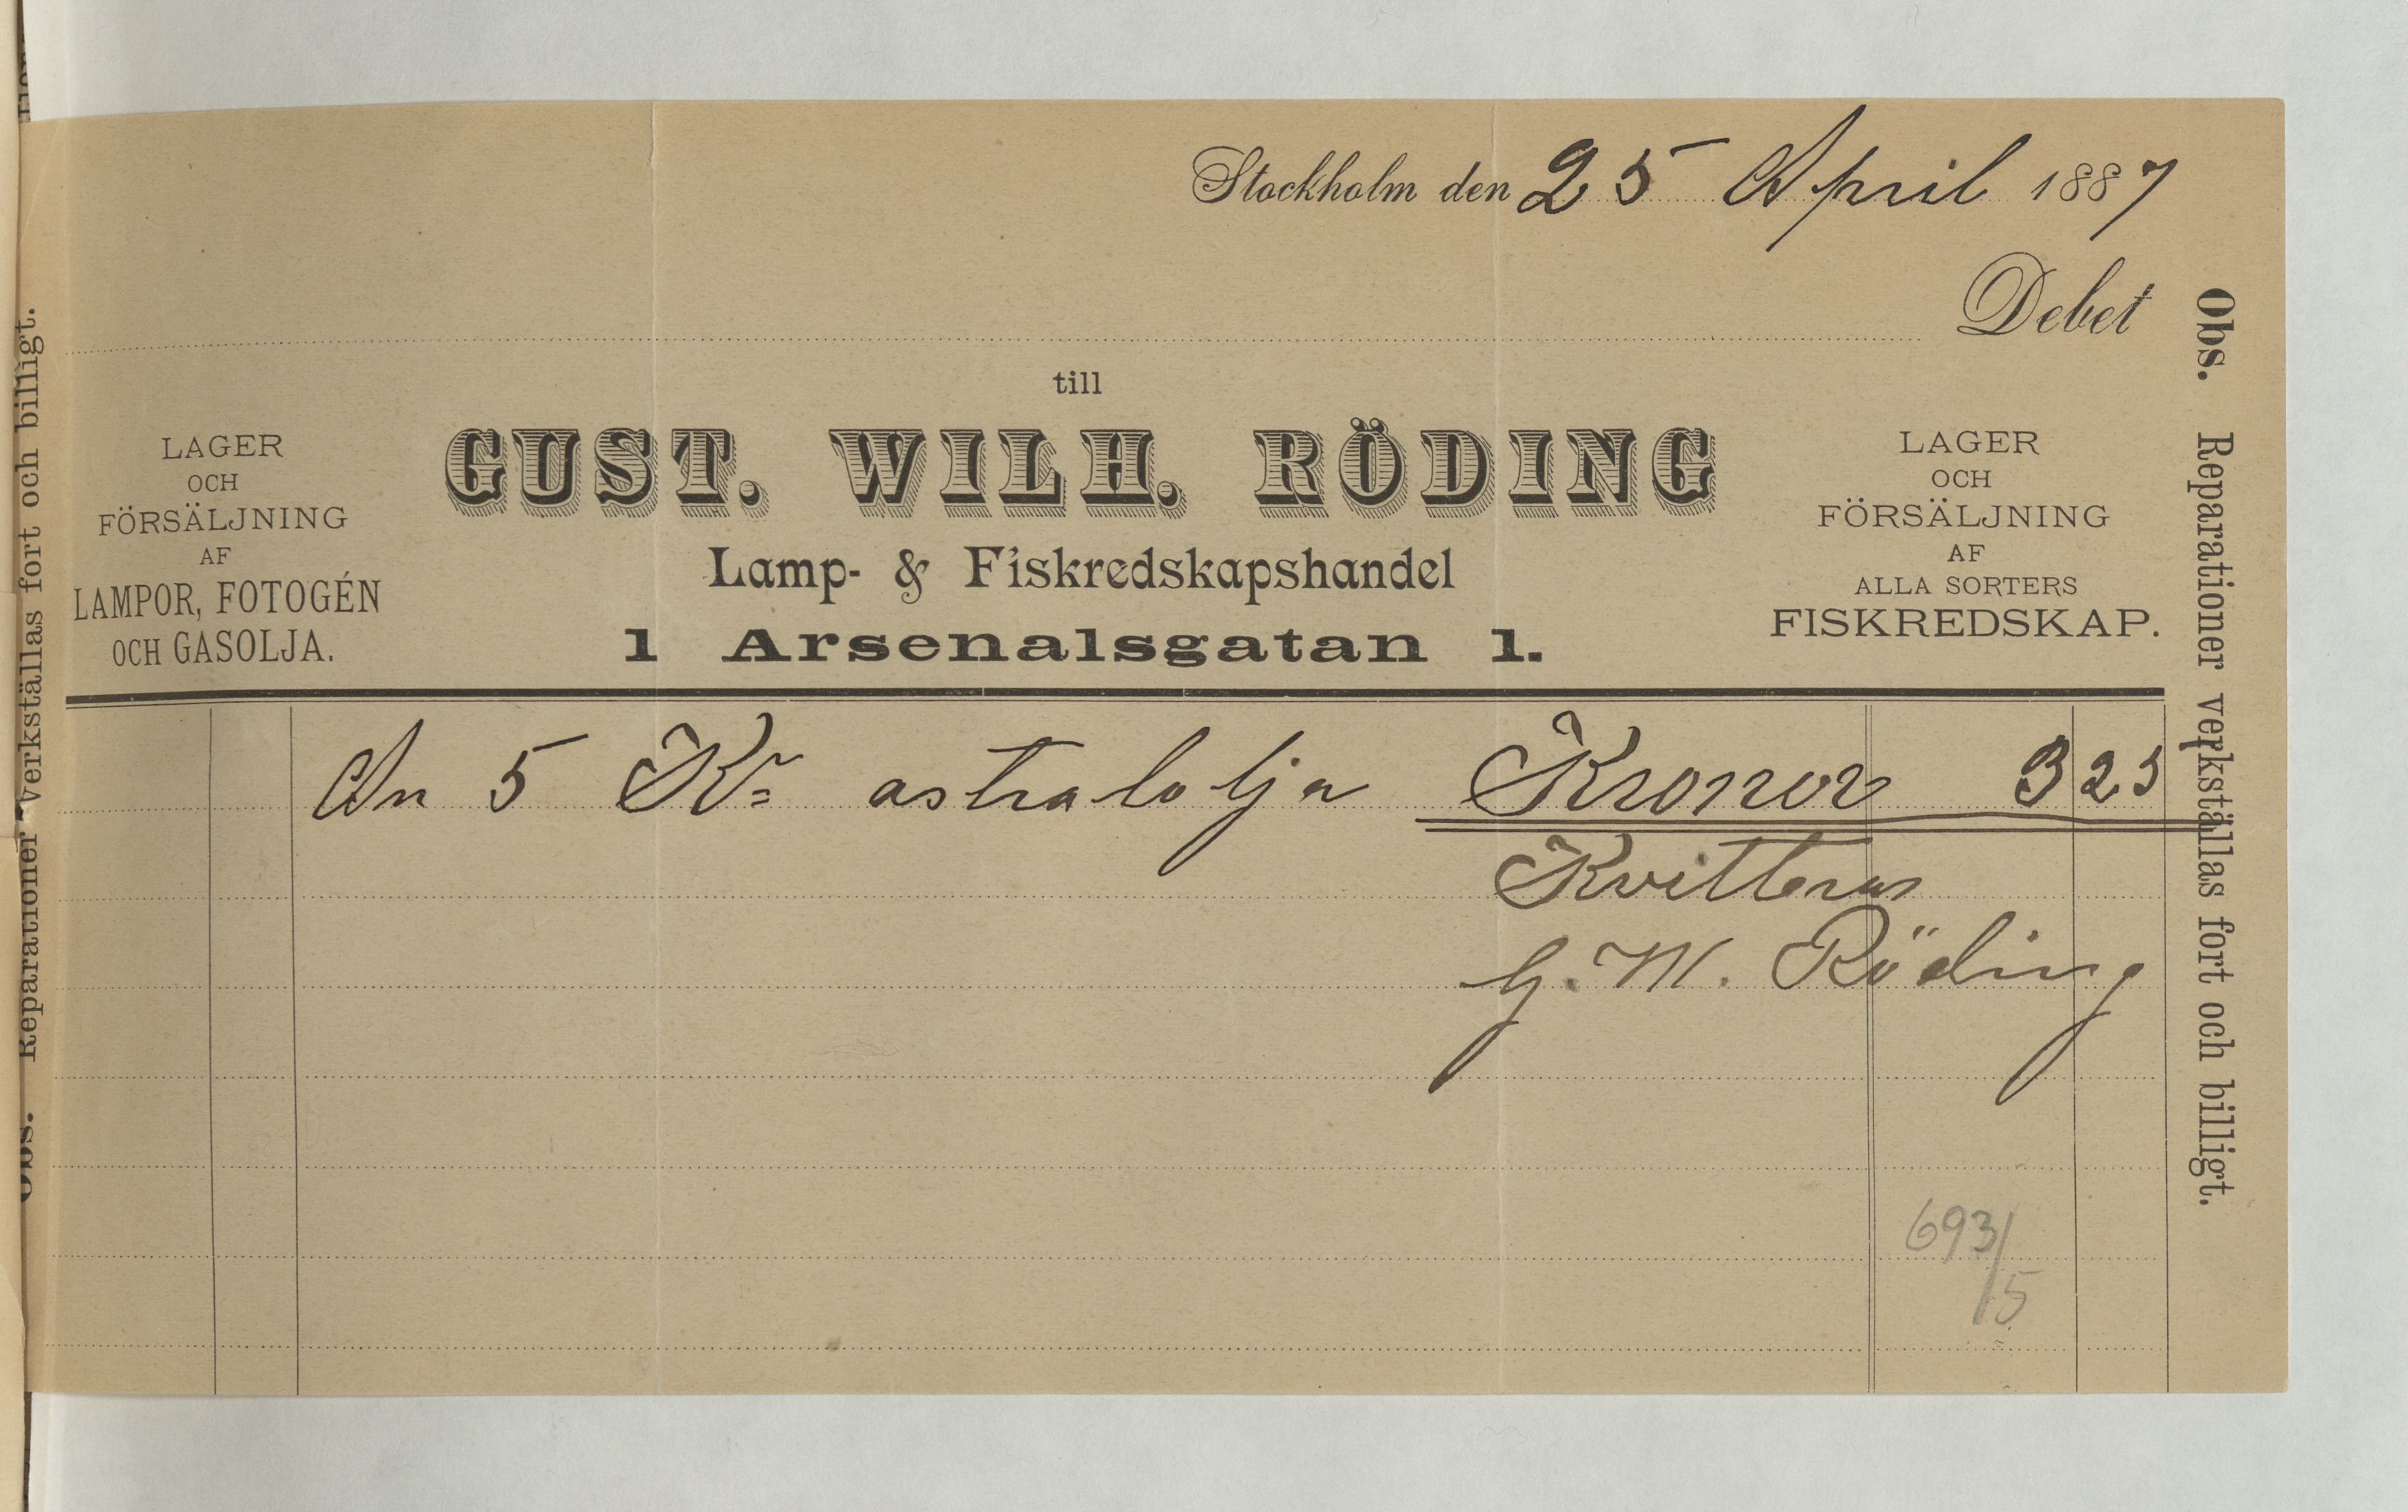 Stockholm den 25 April 1887
Debet
till
GUST. WILH. RÖDING
Lamp- & Fiskredskapshandel
1 Arsenalsgatan 1.
LAGER
OCH
FÖRSÄLJNING
AF
LAMPOR, FOTOGÉN
OCH GASOLJA.
LAGER
OCH
FÖRSÄLJNING
AF
ALLA SORTERS
FISKREDSKAP.
An 5 Kr astralolja Kronor 3 25
Kvitteras
G. W. Röding
693/5
Obs. Reparationer verkställas fort och billigt.
Obs. Reparationer verkställas fort och billigt.